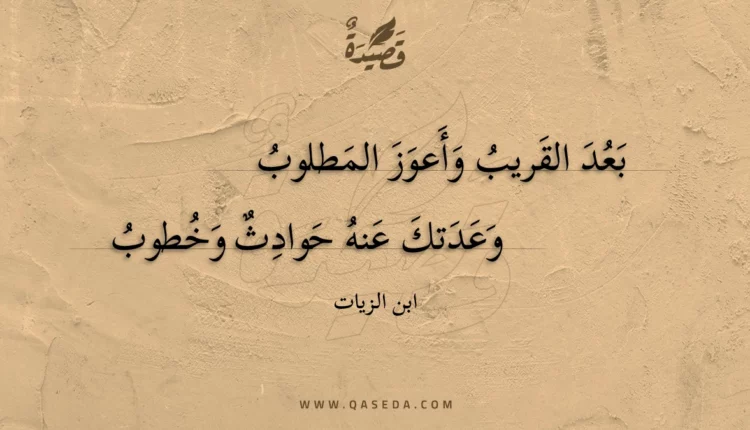 قَصِيدَةٌ
بَعُدَ القَريبُ وَأَعوَزَ المَطلوبُ
وَعَدَتكَ عَنهُ حَوادِثٌ وَخُطوبُ
ابن الزيات
WWW.QASEDA.COM